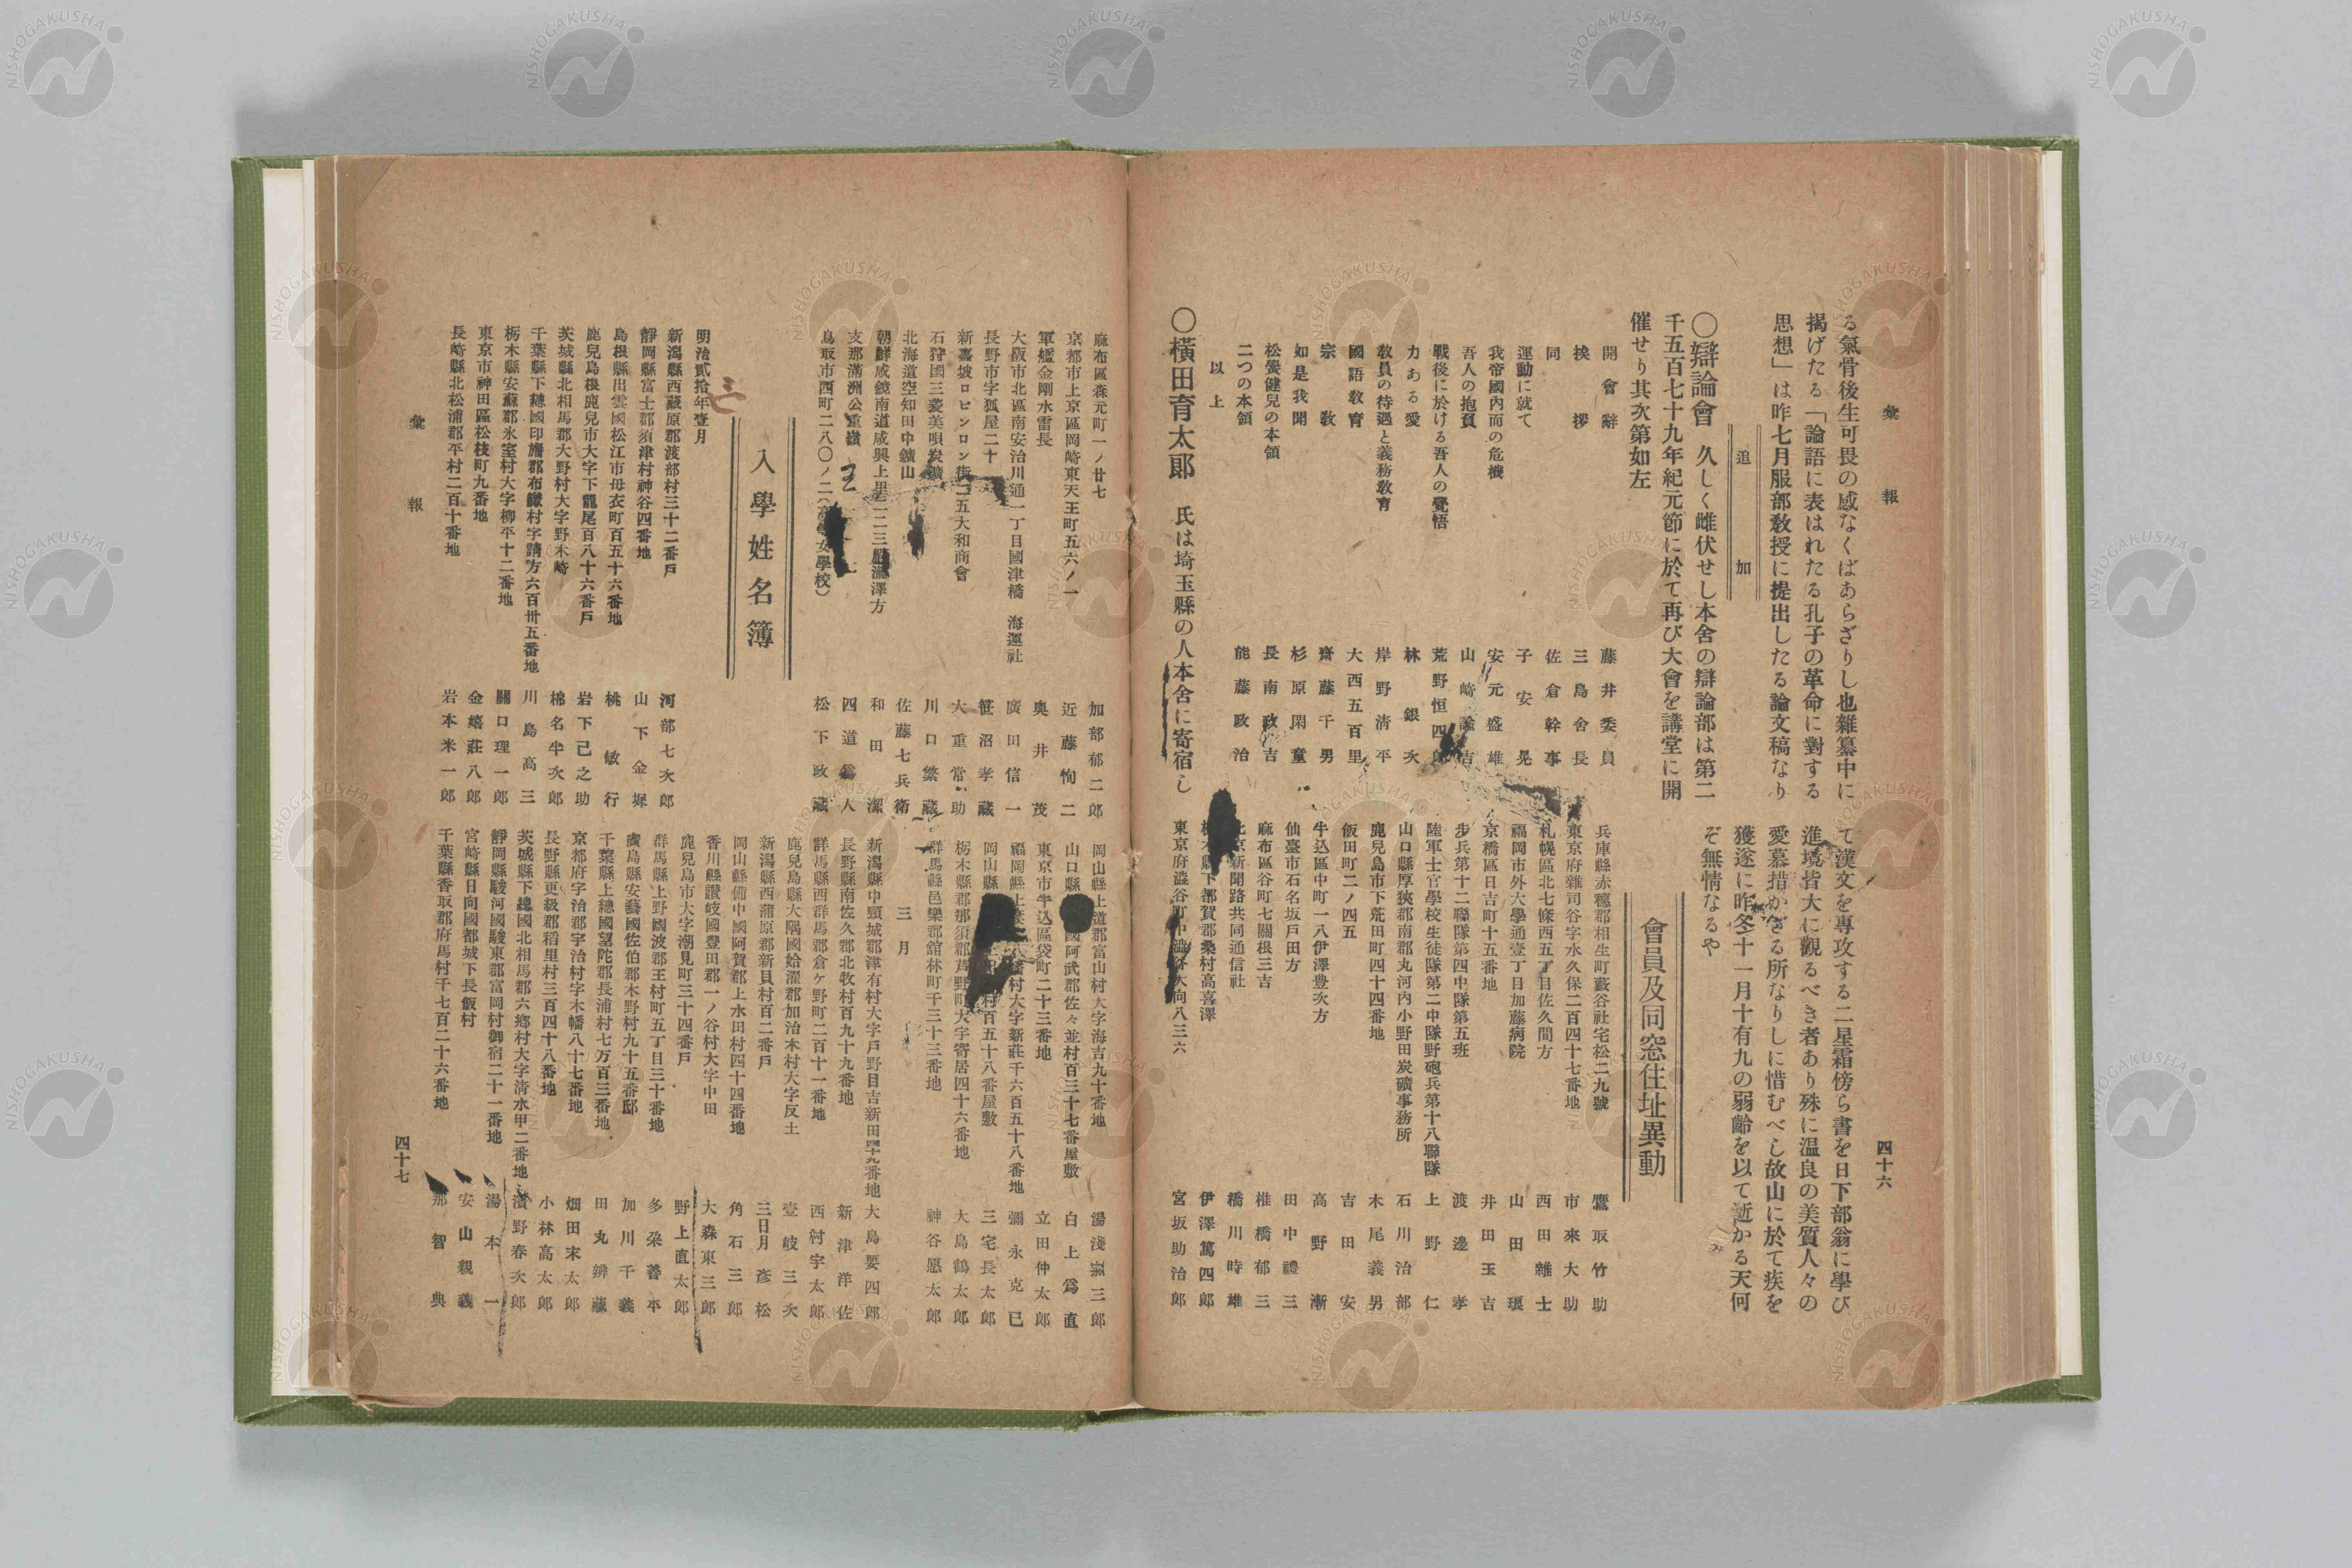 彙報
四十六
る氣骨後生可畏の感なくばあらざりし也雜纂中に
揭げたる「論語に表はれたる孔子の革命に對する
思想」は昨七月服部敎授に提出したる論文稿なり
追加
〇辯論會 久しく雌伏せし本舍の辯論部は第二
千五百七十九年紀元節に於て再び大會を講堂に開
催せり其次第如左
開會辭 藤井委員
挨拶 三島舍長
同 佐倉幹事
運動に就て 子安晃
我帝國內而の危機 安元盛雄
吾人の抱負 山崎諭吉
戰後に於ける吾人の覺悟 荒野恒四郎
力ある愛 林銀次
敎員の待遇と義務敎育 岸野淸平
國語敎育 大西五百里
宗敎 齋藤千男
如是我聞 杉原閑童
松螢健兒の本領 長南政吉
二つの本領 能藤政治
以上
〇橫田育太郞 氏は埼玉縣の人本舍に寄宿し
て漢文を專攻する二星霜傍ら書を日下部翁に學び
進境皆大に觀るべき者あり殊に温良の美質人々の
愛慕措かざる所なりしに惜むべし故山に於て疾を
獲遂に昨冬十一月十有九の弱齡を以て逝かる天何
ぞ無情なるや
會員及同窓住址異動
兵庫縣赤穗郡相生町藪谷社宅松二九號 鷹取竹助
東京府雜司谷字水久保二百四十七番地 市來大助
札幌區北七條西五丁目佐久間方 西田雜士
福岡市外大學通壹丁目加藤病院 山田環
京橋區日吉町十五番地 井田玉吉
步兵第十二聯隊第四中隊第五班 渡邊孝
陸軍士官學校生徒隊第二中隊野砲兵第十八聯隊 上野仁
山口縣厚狹郡南郡丸河內小野田炭礦事務所 石川治部
鹿兒島市下荒田町四十四番地 木尾義男
飯田町二ノ四五 吉田安
牛込區中町一八伊澤豊次方 高野漸
仙臺市石名坂戶田方 田中禮三
麻布區谷町七關根三吉 椎橋郁三
京新開路共同通信社 橋川時雄
縣下都賀郡桑村高喜澤 伊澤篤四郞
東京府澁谷町中澁谷大向八三六 宮坂助治郞
麻布區森元町一ノ廿七 加部郁二郞
京都市上京區岡崎東天王町五六ノ一 近藤恂二
軍艦金剛水雷長 奧井茂
大阪市北區南安治川通一丁目國津橋 海運社 廣田信一
長野市字狐屋二十 笹沼孝藏
新嘉坡ロビンロン街一五大和商會 大重常助
石狩國三菱美唄炭礦 川口繁藏
北海道空知田中鑛山 佐藤七兵衛
朝鮮咸鏡南道咸興上里二二三瀧澤方 和田潔
支那滿洲公重嶺 四道爲人
鳥取市西町二八〇ノ二(女學校) 松下政藏
入學姓名簿
明治貳拾年壹月
新潟縣西蔵原郡渡部村三十二番戶 河部七次郞
靜岡縣富士郡須津村神谷四番地 山下金墀
島根縣出雲國松江市母衣町百五十六番地 桃敏行
鹿兒島根鹿兒市大字下龍尾百八十六番戶 岩下己之助
茨城縣北相馬郡大野村大字野木崎 棉名半次郞
千葉縣下總國印旛郡布鎌村字請方六百卅五番地 川島高三
栃木縣安蘇郡氷室村大字柳平十二番地 關口理一郞
東京市神田區松枝町九番地 金嬉莊八郞
長崎縣北松浦郡平村二百十番地 岩本米一郞
岡山縣上道郡富山村大字海吉九十番地 湯淺宗三郞
山口縣國阿武郡佐々並村百三十七番屋敷 白上爲直
東京市牛込區袋町二十三番地 立田仲太郞
福岡縣上村大字新莊千六百五十八番地 彌永克己
岡山縣村百五十八番屋敷 三宅長太郞
栃木縣郡那須郡芦野町大字寄居四十六番地 大島鶴太郞
群馬縣邑樂郡舘林町千三十三番地 神谷愿太郞
三月
新潟縣中頸城郡津有村大字戶野目吉新田四十九番地 大島要四郞
長野縣南佐久郡北牧村百九十九番地 新津洋佐
群馬縣西群馬郡倉ヶ野町二百十一番地 西村宇太郞
鹿兒島縣大隅國姶濯郡加治木村大字反土 壹岐三次
新潟縣西蒲原郡新貝村百二番戶 三日月彥松
岡山縣備中國阿賀郡上水田村四十四番地 角石三郞
香川縣讃岐國豊田郡一ノ谷村大字中田 大森東三郞
鹿兒島市大字潮見町三十四番戶 野上直太郞
群馬縣上野國波郡王村町五丁目三十番地 多朶善平
廣島縣安藝國佐伯郡木野村九十五番邸 加川千義
千葉縣上總國望陀郡長浦村七万百三番地 田丸辨藏
京都府宇治郡宇治村字木幡八十七番地 畑田末太郞
長野縣更級郡稻里村三百四十八番地 小林高太郞
茨城縣下總國北相馬郡六鄕村大字淸水甲二番地 濱野春次郞
靜岡縣駿河國駿東郡富岡村御宿二十一番地 湯本一
宮崎縣日向國都城下長飯村 安山親義
千葉縣香取郡府馬村千七百二十六番地 那智典
彙報
四十七
NISHOGAKUSHA